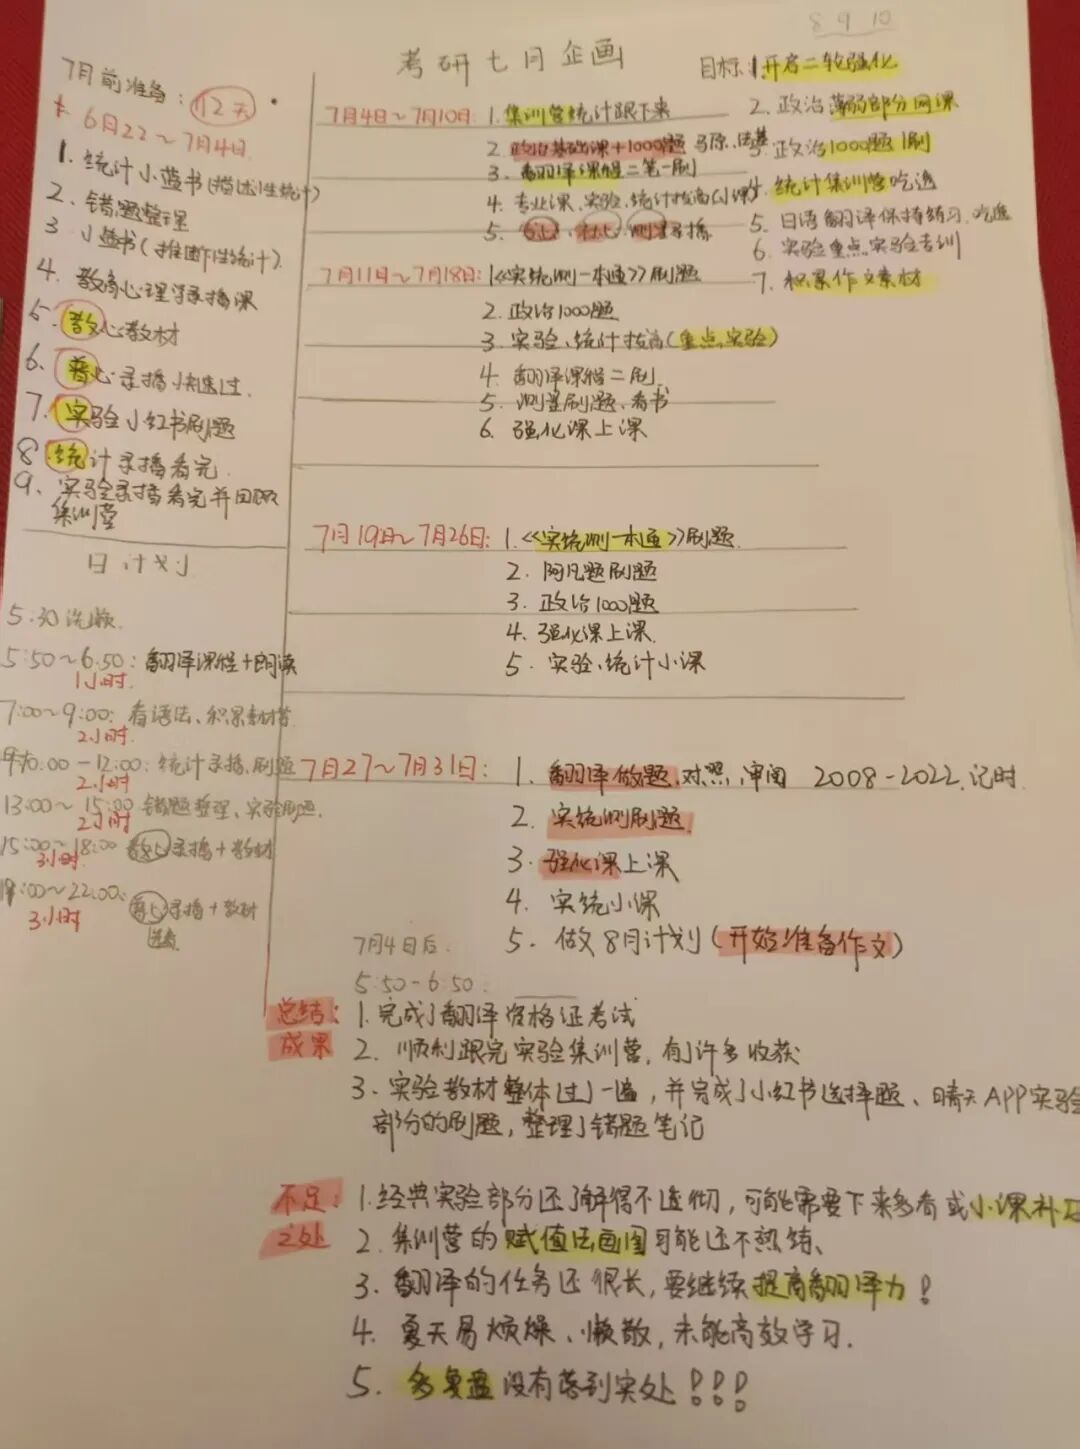 8 9 10
考研七月企画
7月前准备：12天
6月22～7月4日
1. 统计小蓝书(描述性统计)
2. 错题整理
3 小蓝书(推断性统计).
4. 教育心理学录播课
5. 教心教材
6. 普心录播快速过.
7. 实验小红书刷题
8 统计录播看完.
9、实验录播看完并回顾
集训营
日计划
5:30洗漱.
5:50～6:50: 翻译课程+朗读
1小时.
7:00～9:00: 看语法、积累素材
2小时.
10:00-12:00: 统计录播、刷题
2小时
13:00～15:00 错题整理、实验刷题.
2小时
15:00～18:00 教心录播+教材
3小时.
19:00～22:00: 普心录播+教材
3小时
目标: 1.开启二轮强化
2. 政治薄弱部分网课
3. 政治1000题1刷
4. 统计集训营吃透
5 日语翻译保持练习.吃透
6. 实验重点.实验专训
7. 积累作文素材
7月4日～7月10日: 1.集训营统计跟下来
2. 政治基础课+1000题 马原、
3. 翻译课程二笔一刷
4. 专业课、实验、统计拔高(小课)
5. 录播
7月11日～7月18日: 1《实统测一本通》刷题
2. 政治1000题
3. 实验、统计拔高(重点实验)
4. 翻译课程二刷.
5. 测量刷题、看书
6. 强化课上课
7月19日～7月26日: 1.《实统测一本通》刷题.
2. 阿凡题刷题
3. 政治1000题
4. 强化课上课.
5. 实验、统计小课
7月27～7月31日: 1. 翻译做题.对照、审阅 2008-2022.记时
2. 实统测刷题.
3. 强化课上课
4. 实统小课
5. 做8月计划(开始准备作文)
7月4日后.
5:50-6:50:
总结: 1.完成了翻译资格证考试
成果 2. 顺利跟完实验集训营，有许多收获
3. 实验教材整体过了一遍，并完成了小红书选择题、晴天APP实验
部分的刷题，整理了错题笔记
不足: 1.经典实验部分还了解得不透彻，可能需要下来多看或小课补
之处 2. 集训营的赋值法画图可能还不熟练、
3. 翻译的任务还很长，要继续提高翻译力！
4. 夏天易烦燥、懒散，未能高效学习.
5. 多复盘没有落到实处！！！